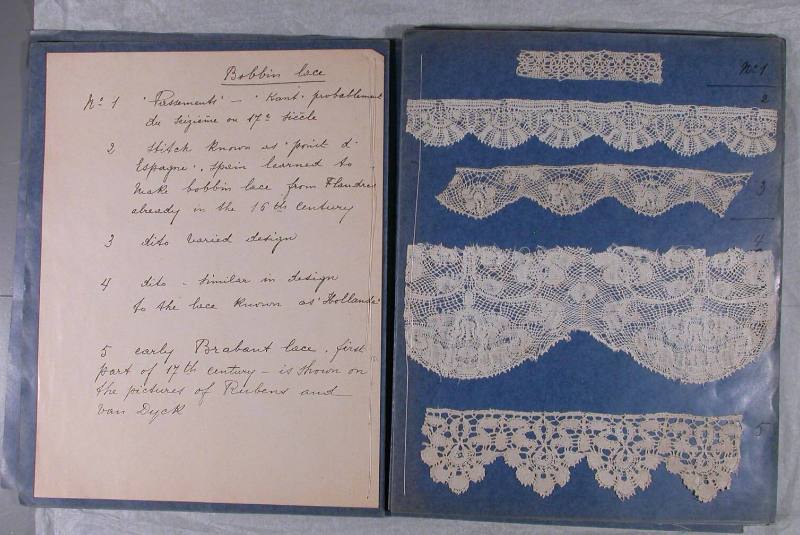 Bobbin lace
No 1 "Passements" - "Kant" probablement
du seizième ou 17e siècle
2 stitch known as "point d'
Espagne". Spain learned to
make bobbin lace from Flandres
already in the 16th century
3 dito varied design
4 dito - similar in design
to the lace known as "Hollande"
5 early Brabant lace. first
part of 17th century - is shown on
the pictures of Rubens and
van Dyck
No 1
2
3
4
5